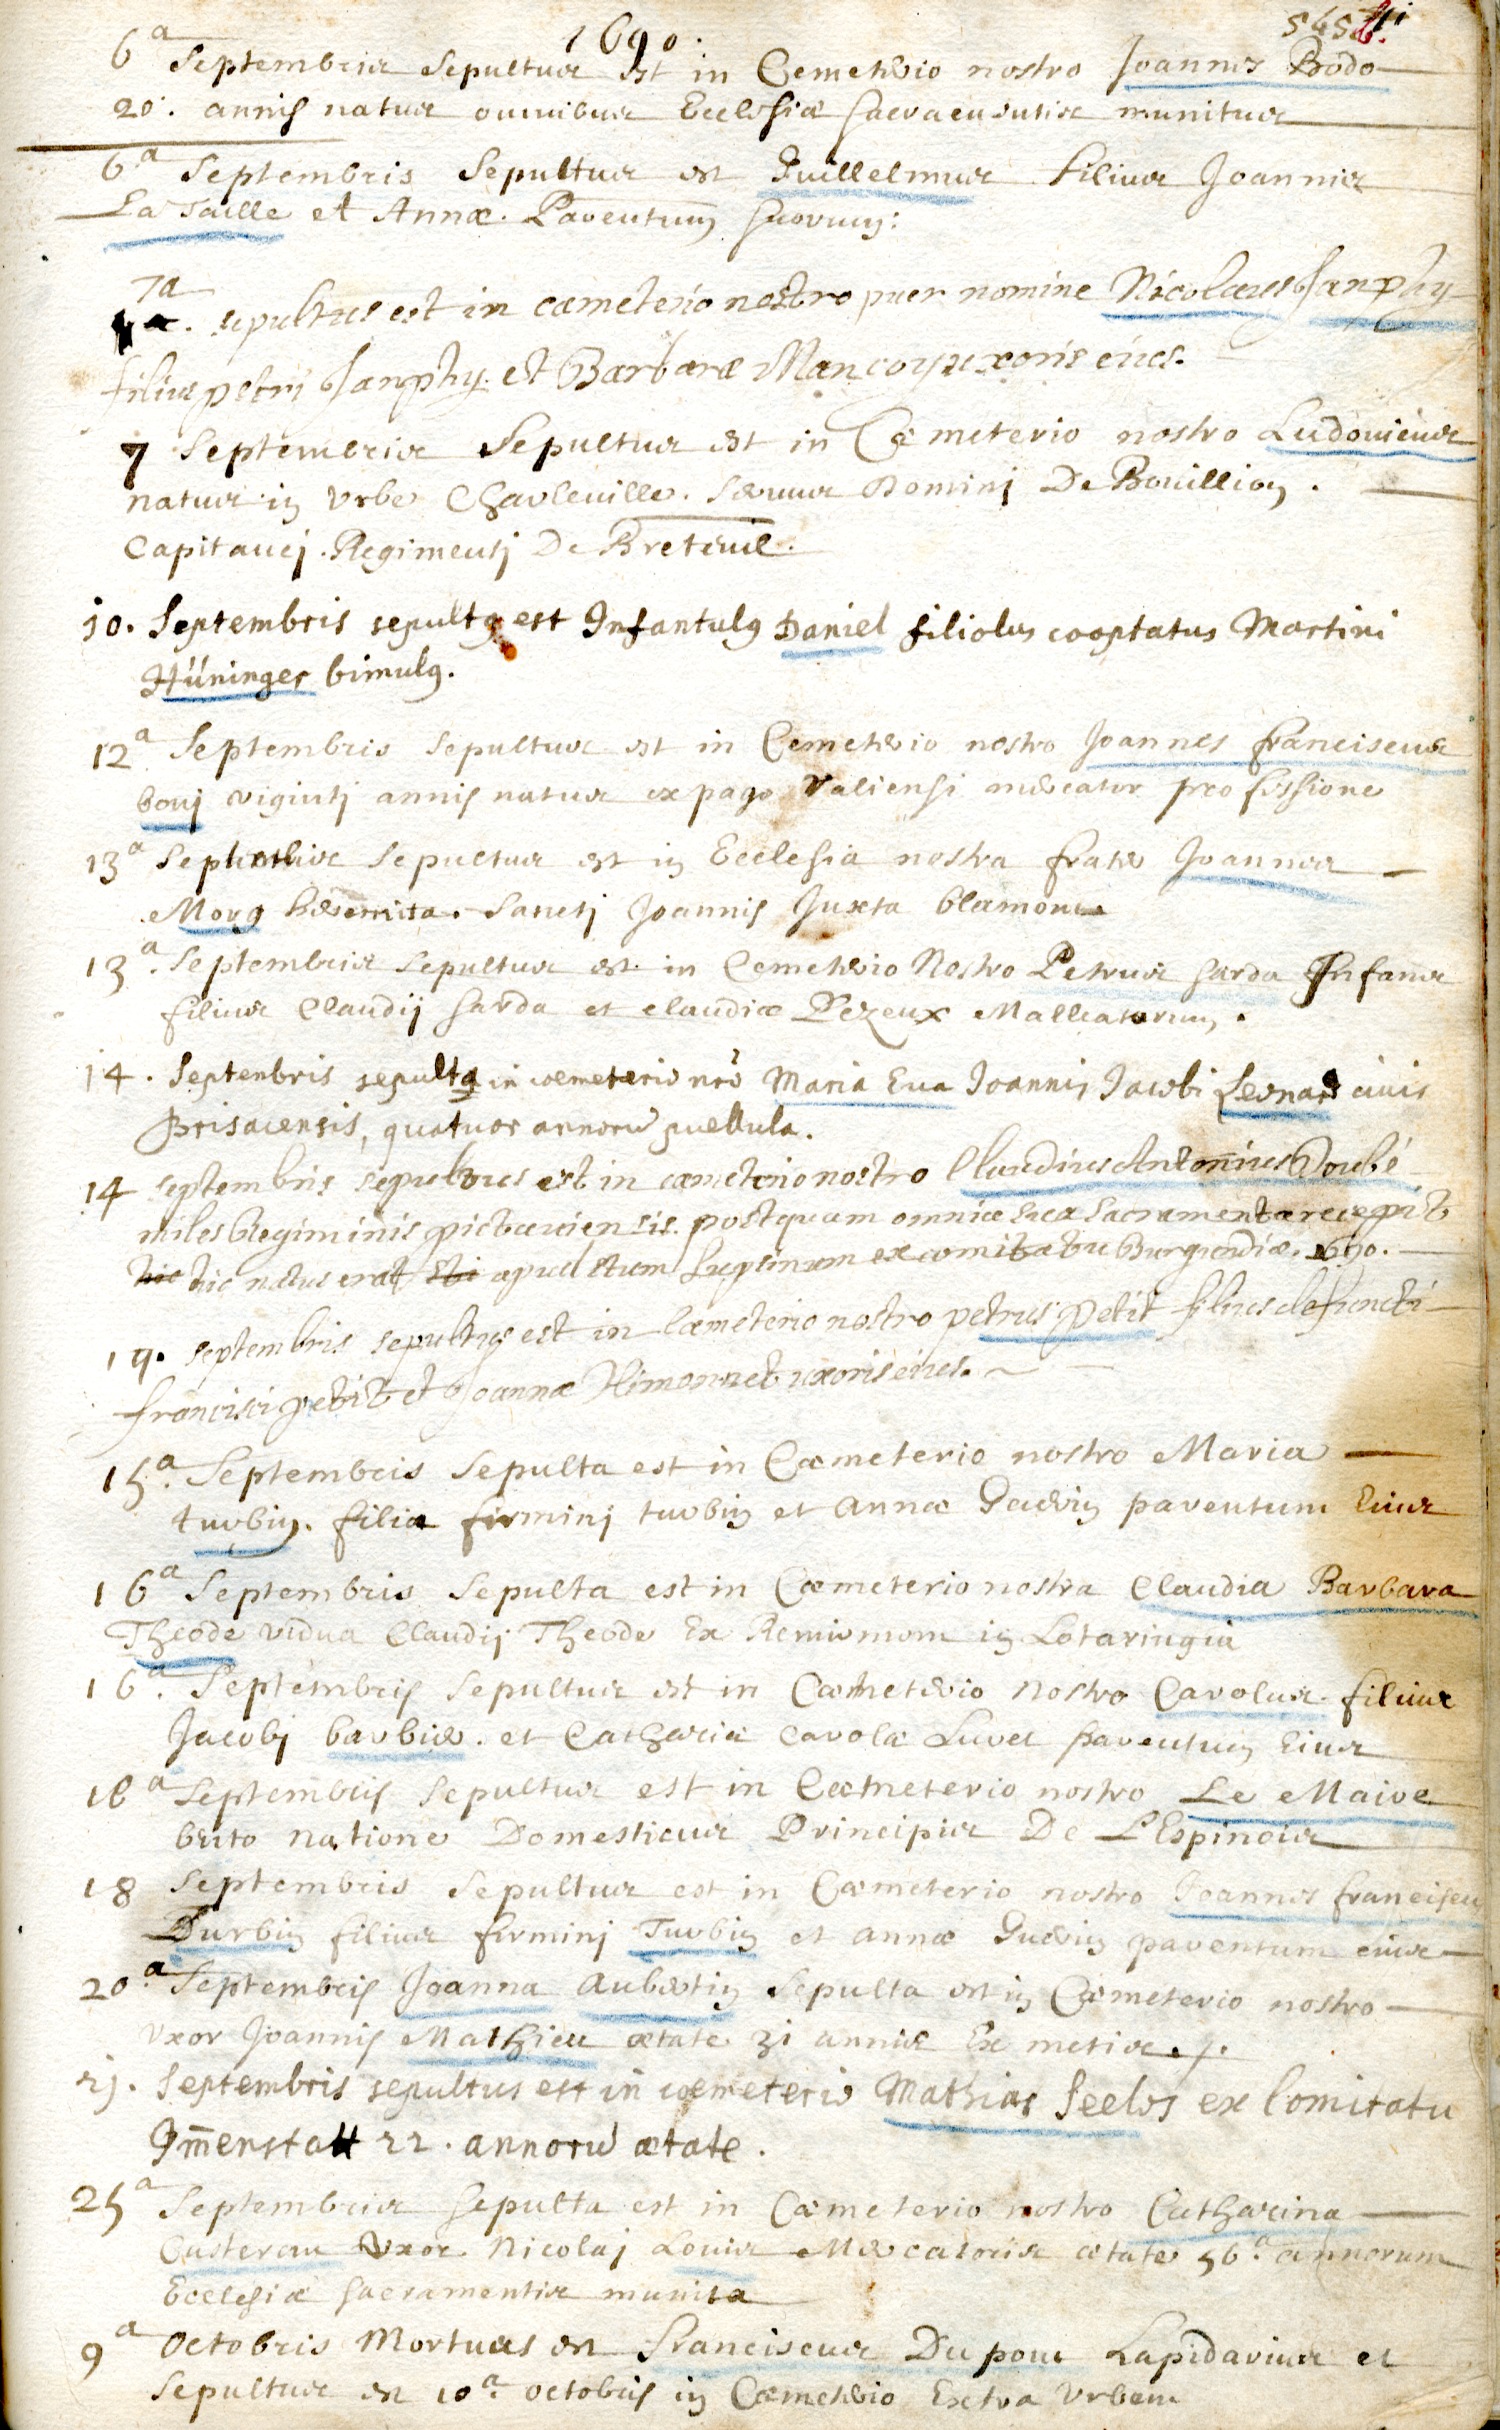 1690.
6a Septembris Sepultus est in Cemeterio nostro Joannes Bodo
20. annis natus omnibus Ecclesiæ sacramentis munitus
6a Septembris Sepultus est Guillelmus filius Joannis
La Taille et Annæ Parentum suorum:
7a
sepultus est in cæmeterio nostro puer nomine Nicolaus Janphy
filius petri Janphy et Barbaræ Mancoy uxoris eius.
7 Septembris Sepultus est in Cæmeterio nostro Ludovicus
natus in Urbe Charleville. servus Domini De Bouillion.
Capitanei Regimenti De Breteuil.
10. Septembris sepultq est Infantulq Daniel filiolus cooptatus Martini
Hüninger bimulq.
12a Septembris Sepultus est in Cemeterio nostro Joannes franciscus
bovj vigintj annis natus ex pago Valiensi mercator professione
13a Septembris Sepultus est in Ecclesia nostra frater Joannes
Morg heremita. Sanctj Joannis Juxta blamont
13a. Septembris Sepultus est in Cemeterio Nostro Petrus sarda Infans
filius Claudij sarda et claudiæ Pezeux Malleatorum.
14. Septenbris sepulta in cæmeterio nrō Maria Eva Joannis Jacobi Leonard civis
Brisacensis, quatuor annorū puellula.
14 septembris sepultus est in cæmeterio nostro Claudius Antonius Doubé
miles Regiminis pictaviensis postquam omnia sua Sacramenta recepit
hic natus erat apud stum Lupsinum ex comitatu Burgundiæ. 1690.
19. septembris sepultus est in Cæmeterio nostro petrus petit filius defuncti
francisci petit et Joannæ Himonnet uxoris eius.
15a. Septembris Sepulta est in Cæmeterio nostro Maria
turbin. filia firminj turbin et annæ Guerin parentum Eius
16a Septembris Sepulta est in Cæmeterio nostra Claudia Barbara
Theode vidua Claudij Theode Ex Remiremom in Lotaringia
16a. Septembris Sepultus est in Cæmeterio nostro Carolus filius
Jacobj barbier. et Catharia carola Luvet parentum Eius
18a Septembris Sepultus est in Cæmeterio nostro Le Maire
brito natione Domesticus Principis De L'Espinois
18 Septembris Sepultus est in Cæmeterio nostro Joannes franciscu
Turbin filius firminj Turbin et annæ Guerin parentum eius
20.a Septembris Joanna Aubertin Sepulta est in Cæmeterio nostro
Uxor Joannis Mathieu ætate 31 annis Ex metis.
21. Septembris sepultus est in cæmeterio Mathias Seelos ex Comitatu
Im̄enstatt 22. annorū ætate.
25a Septembris Sepulta est in Cæmeterio nostro Catharina
Custereau Uxor Nicolaj Louis Mercatoris ætate 56.a annorum
Ecclesiæ sacramentis munita
9a Octobris Mortuus est franciscus Du pont Lapidarius et
Sepultus est 10a. octobris in Cæmeterio Extra Urbem